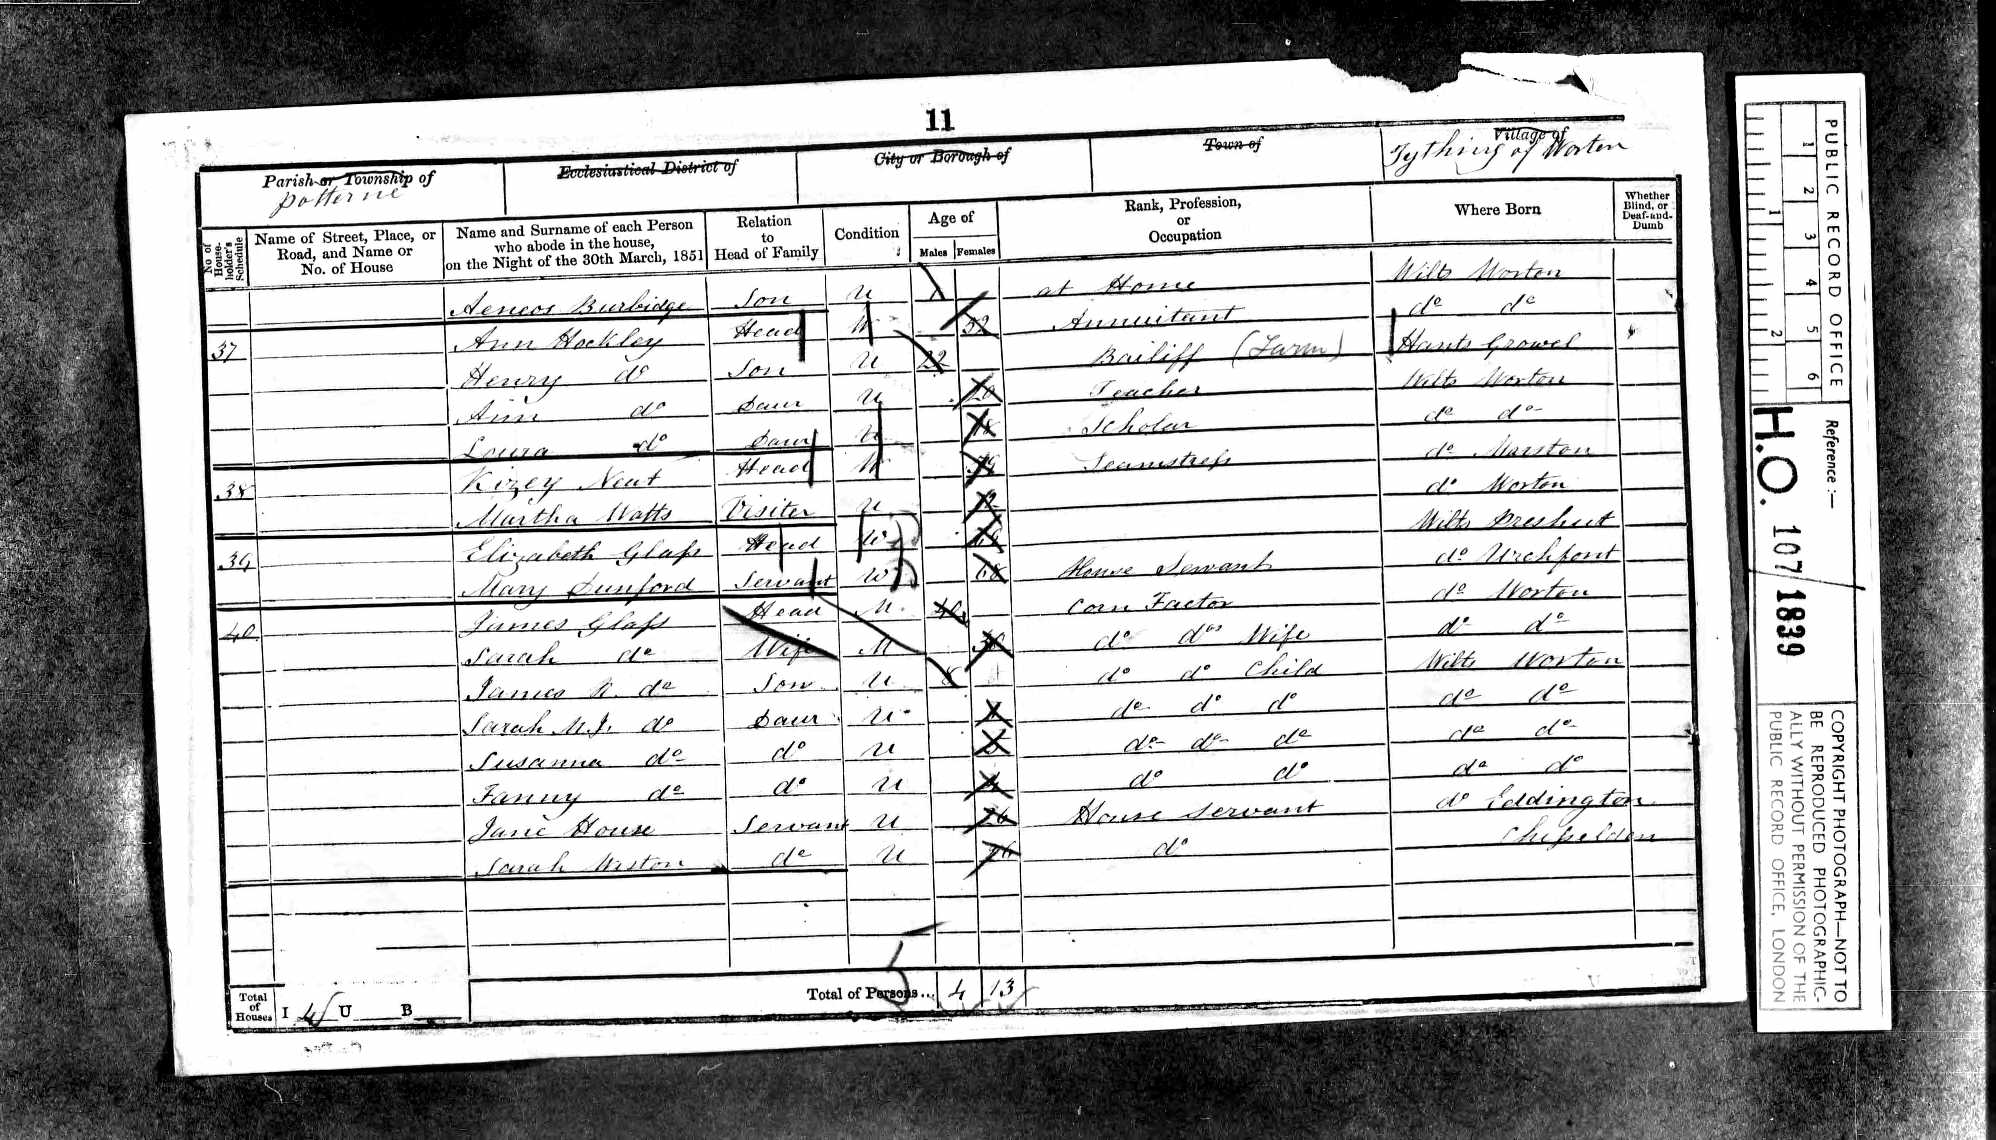 11
Parish or Township of
Potterne
Ecclesiastical District of
City or Borough of
Town of
Village of
Tything of Worton
No. of House-holder's Schedule
Name of Street, Place, or Road, and Name or No. of House
Name and Surname of each Person who abode in the house, on the Night of the 30th March, 1851
Relation to Head of Family
Condition
Age of
Males
Females
Rank, Profession, or Occupation
Where Born
Whether Blind, or Deaf-and-Dumb
Aeneos Burbidge Son U at Home Wilts Worton
37 Ann Hockley Head W 52 Annuitant do do
Henry do Son U 22 Bailiff (Farm) Hants Growel
Ann do Daur U 20 Teacher Wilts Worton
Loura do Daur U 18 Scholar do do
38 Kizey Neat Head W 59 Seamstress do Marston
Martha Watts Visiter U do Worton
39 Elizabeth Glass Head W Wilts Preshut
Mary Dunford Servant W 68 House Servant do Urchfont
40 James Glass Head M 40 Corn Factor do Worton
Sarah do Wife M do dos Wife do do
James R. do Son U 8 do do Child Wilts Worton
Sarah M.J. do Daur U do do do do do
Susanna do do U do do do do do
Fanny do do U do do do do
Jane House Servant U 26 House Servant do Eddington
Sarah Weston do U 16 do Chiseldon
5
Total of Houses I 4 U B
Total of Persons... 4 13
PUBLIC RECORD OFFICE
1 2 3 4 5 6
1 2
Reference:—
H.O. 107/1839
COPYRIGHT PHOTOGRAPH—NOT TO
BE REPRODUCED PHOTOGRAPHIC-
ALLY WITHOUT PERMISSION OF THE
PUBLIC RECORD OFFICE, LONDON